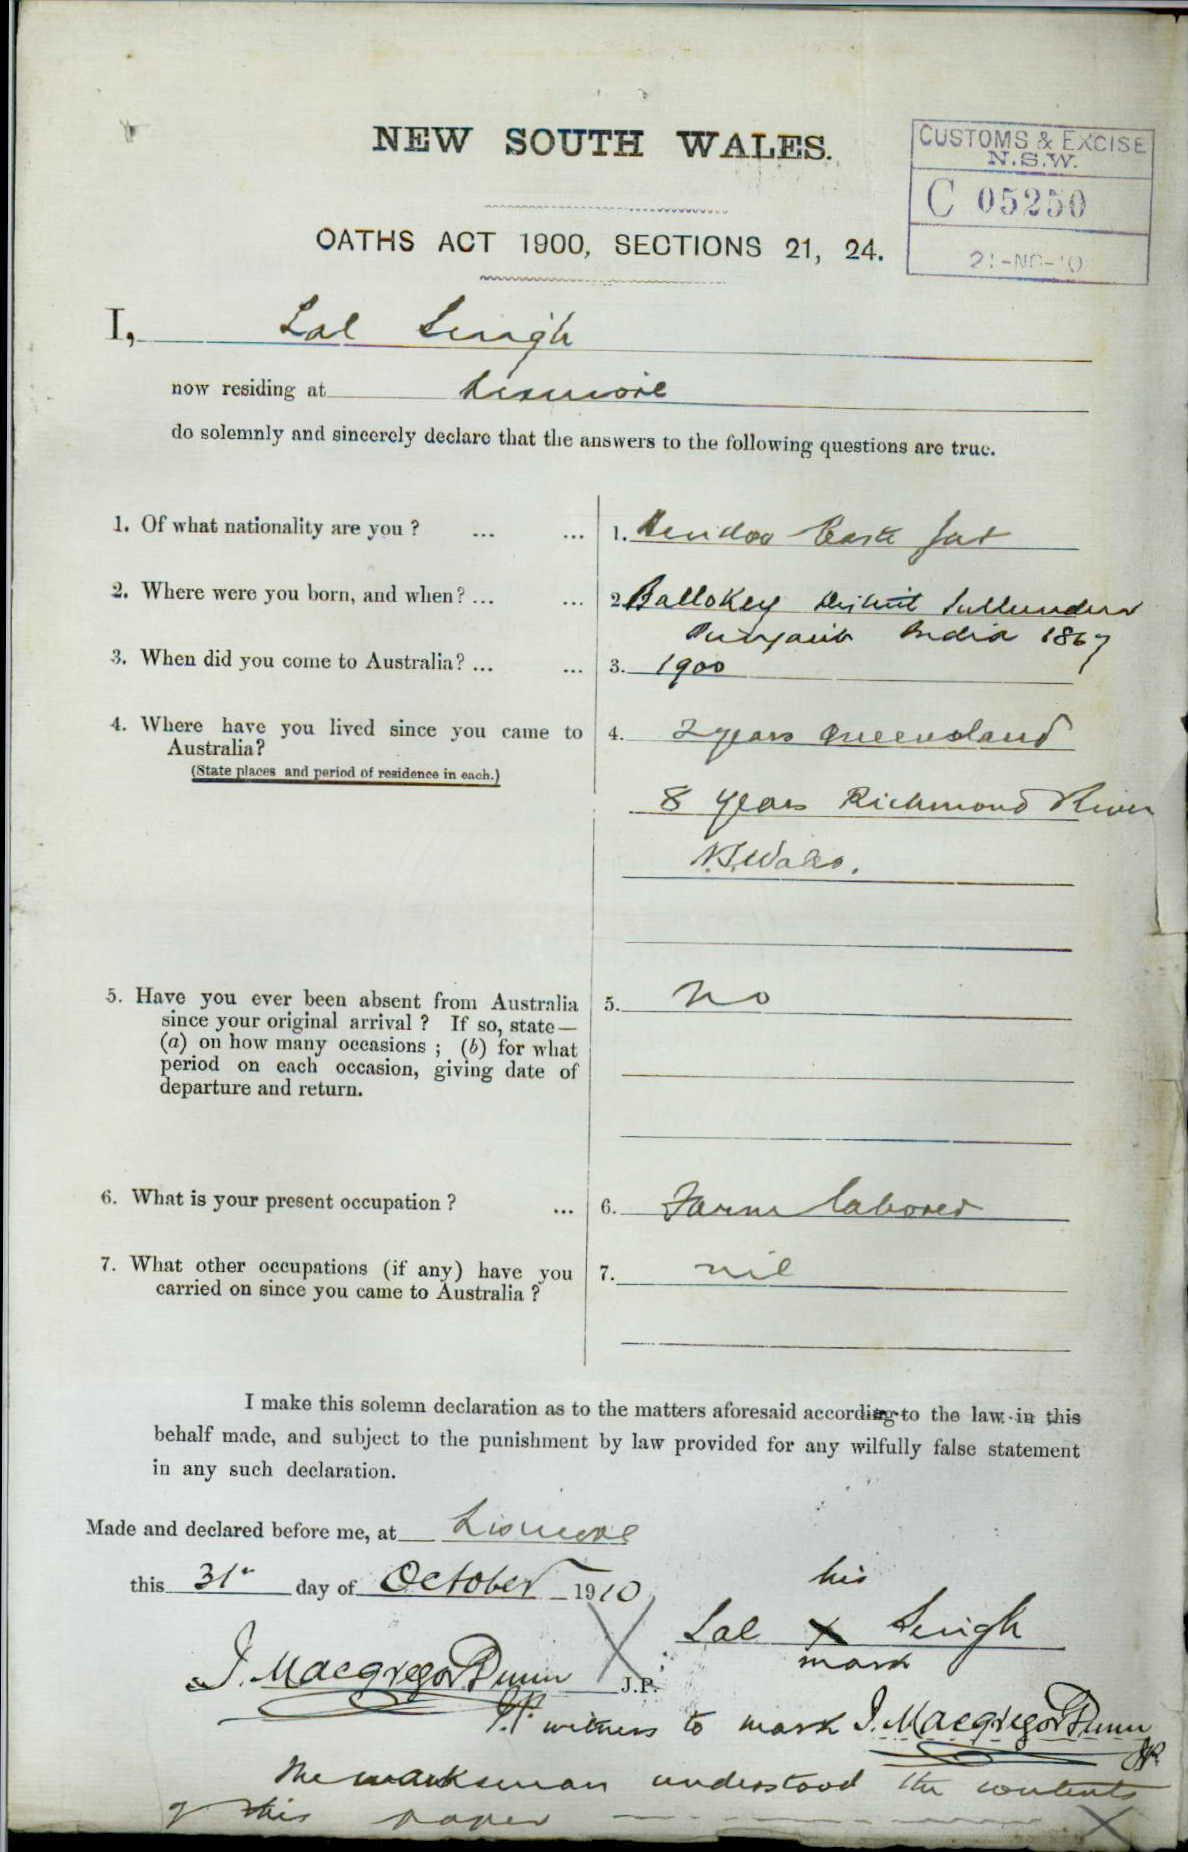 NEW SOUTH WALES.
CUSTOMS & EXCISE
N.S.W.
C 05250
21-NO-10
OATHS ACT 1900, SECTIONS 21, 24.
I, Lal Singh
now residing at Lismore
do solemnly and sincerely declare that the answers to the following questions are true.
1. Of what nationality are you ? ... ... 1. Hindoo Caste Jat
2. Where were you born, and when? ... ... 2. Ballokey District Jullundur
Punjaub India 1867
3. When did you come to Australia? ... ... 3. 1900
4. Where have you lived since you came to 4. 2 years Queensland
Australia?
(State places and period of residence in each.)
8 years Richmond River
N.S.Wales.
5. Have you ever been absent from Australia 5. No
since your original arrival ? If so, state—
(a) on how many occasions ; (b) for what
period on each occasion, giving date of
departure and return.
6. What is your present occupation ? ... 6. Farm laborer
7. What other occupations (if any) have you 7. nil
carried on since you came to Australia ?
I make this solemn declaration as to the matters aforesaid according to the law in this
behalf made, and subject to the punishment by law provided for any wilfully false statement
in any such declaration.
Made and declared before me, at Lismore
this 31st day of October 1910
his
Lal X Singh
mark
J. Macgregor Dunn J.P.
J.P. witness to mark J. Macgregor Dunn
JP
The marksman understood the contents
of this paper